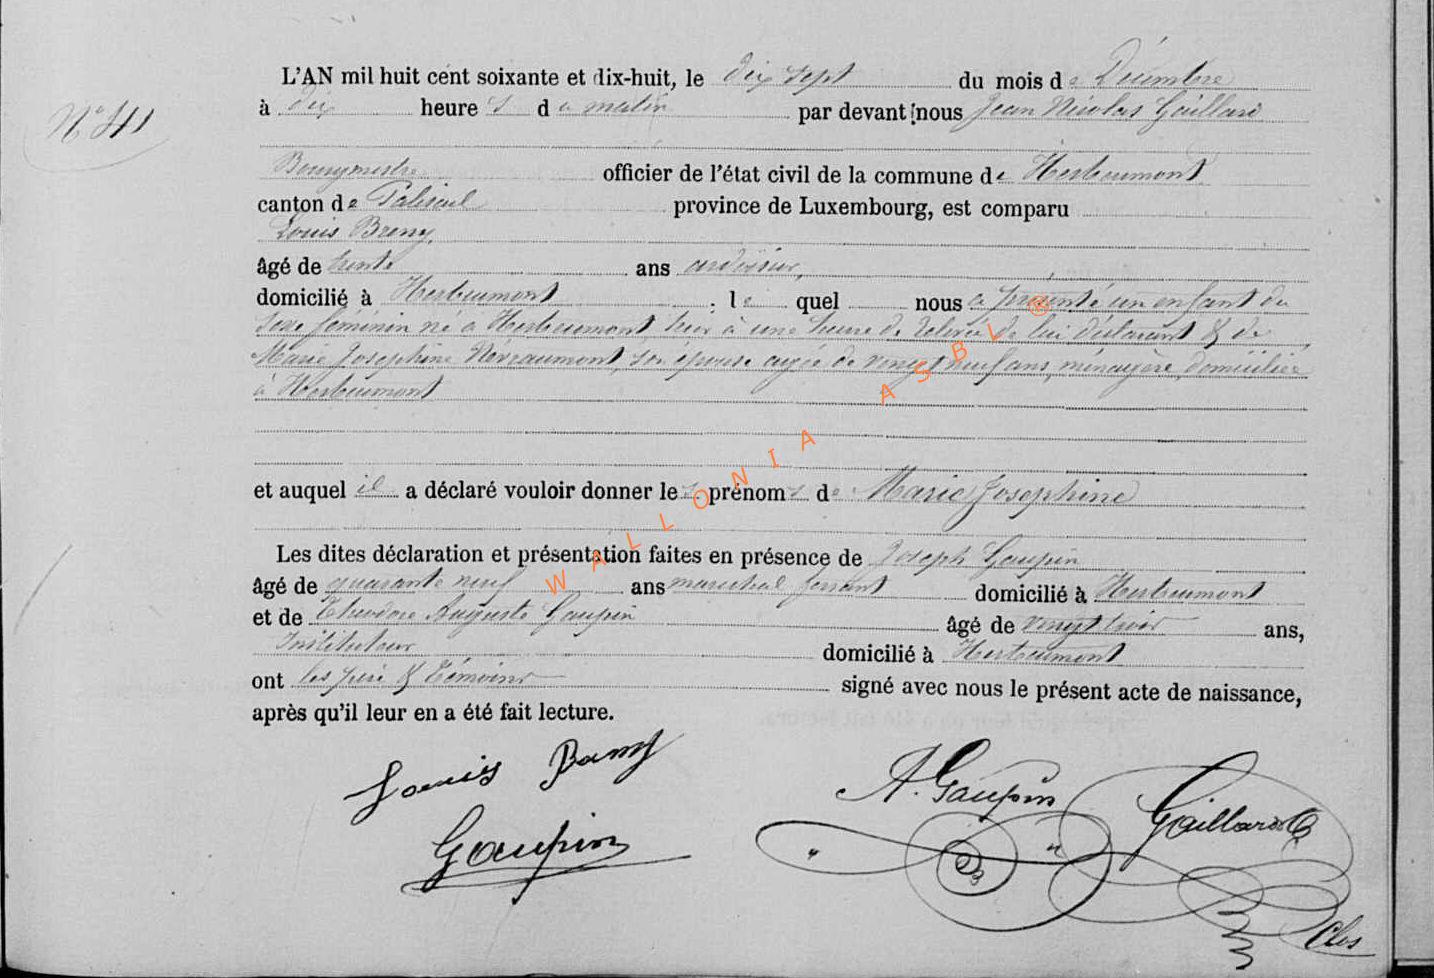 N° 41
L'AN mil huit cent soixante et dix-huit, le dix sept du mois de Décembre
à dix heures du matin par devant nous Jean Nicolas Gaillard
Bourgmestre officier de l'état civil de la commune de Herbeumont
canton de Paliseul province de Luxembourg, est comparu
Louis Breny,
âgé de trente ans ardoisier,
domicilié à Herbeumont ; le quel nous a présenté un enfant du
sexe féminin né à Herbeumont hier à une heure de relevée de lui déclarant & de
Marie Josephine Névraumont, son épouse agée de vingt neuf ans, ménagère, domiciliée
à Herbeumont
et auquel il a déclaré vouloir donner les prénoms de Marie Josephine
Les dites déclaration et présentation faites en présence de Joseph Gaupin
âgé de quarante neuf ans marechal ferrant domicilié à Herbeumont
et de Theodore Auguste Gaupin âgé de vingt trois ans,
Instituteur domicilié à Herbeumont
ont les père & témoins signé avec nous le présent acte de naissance,
après qu'il leur en a été fait lecture.
Louis
A. Gaupin
Gaillard
Gaupin
Clos
WALLONIA ASBL ®